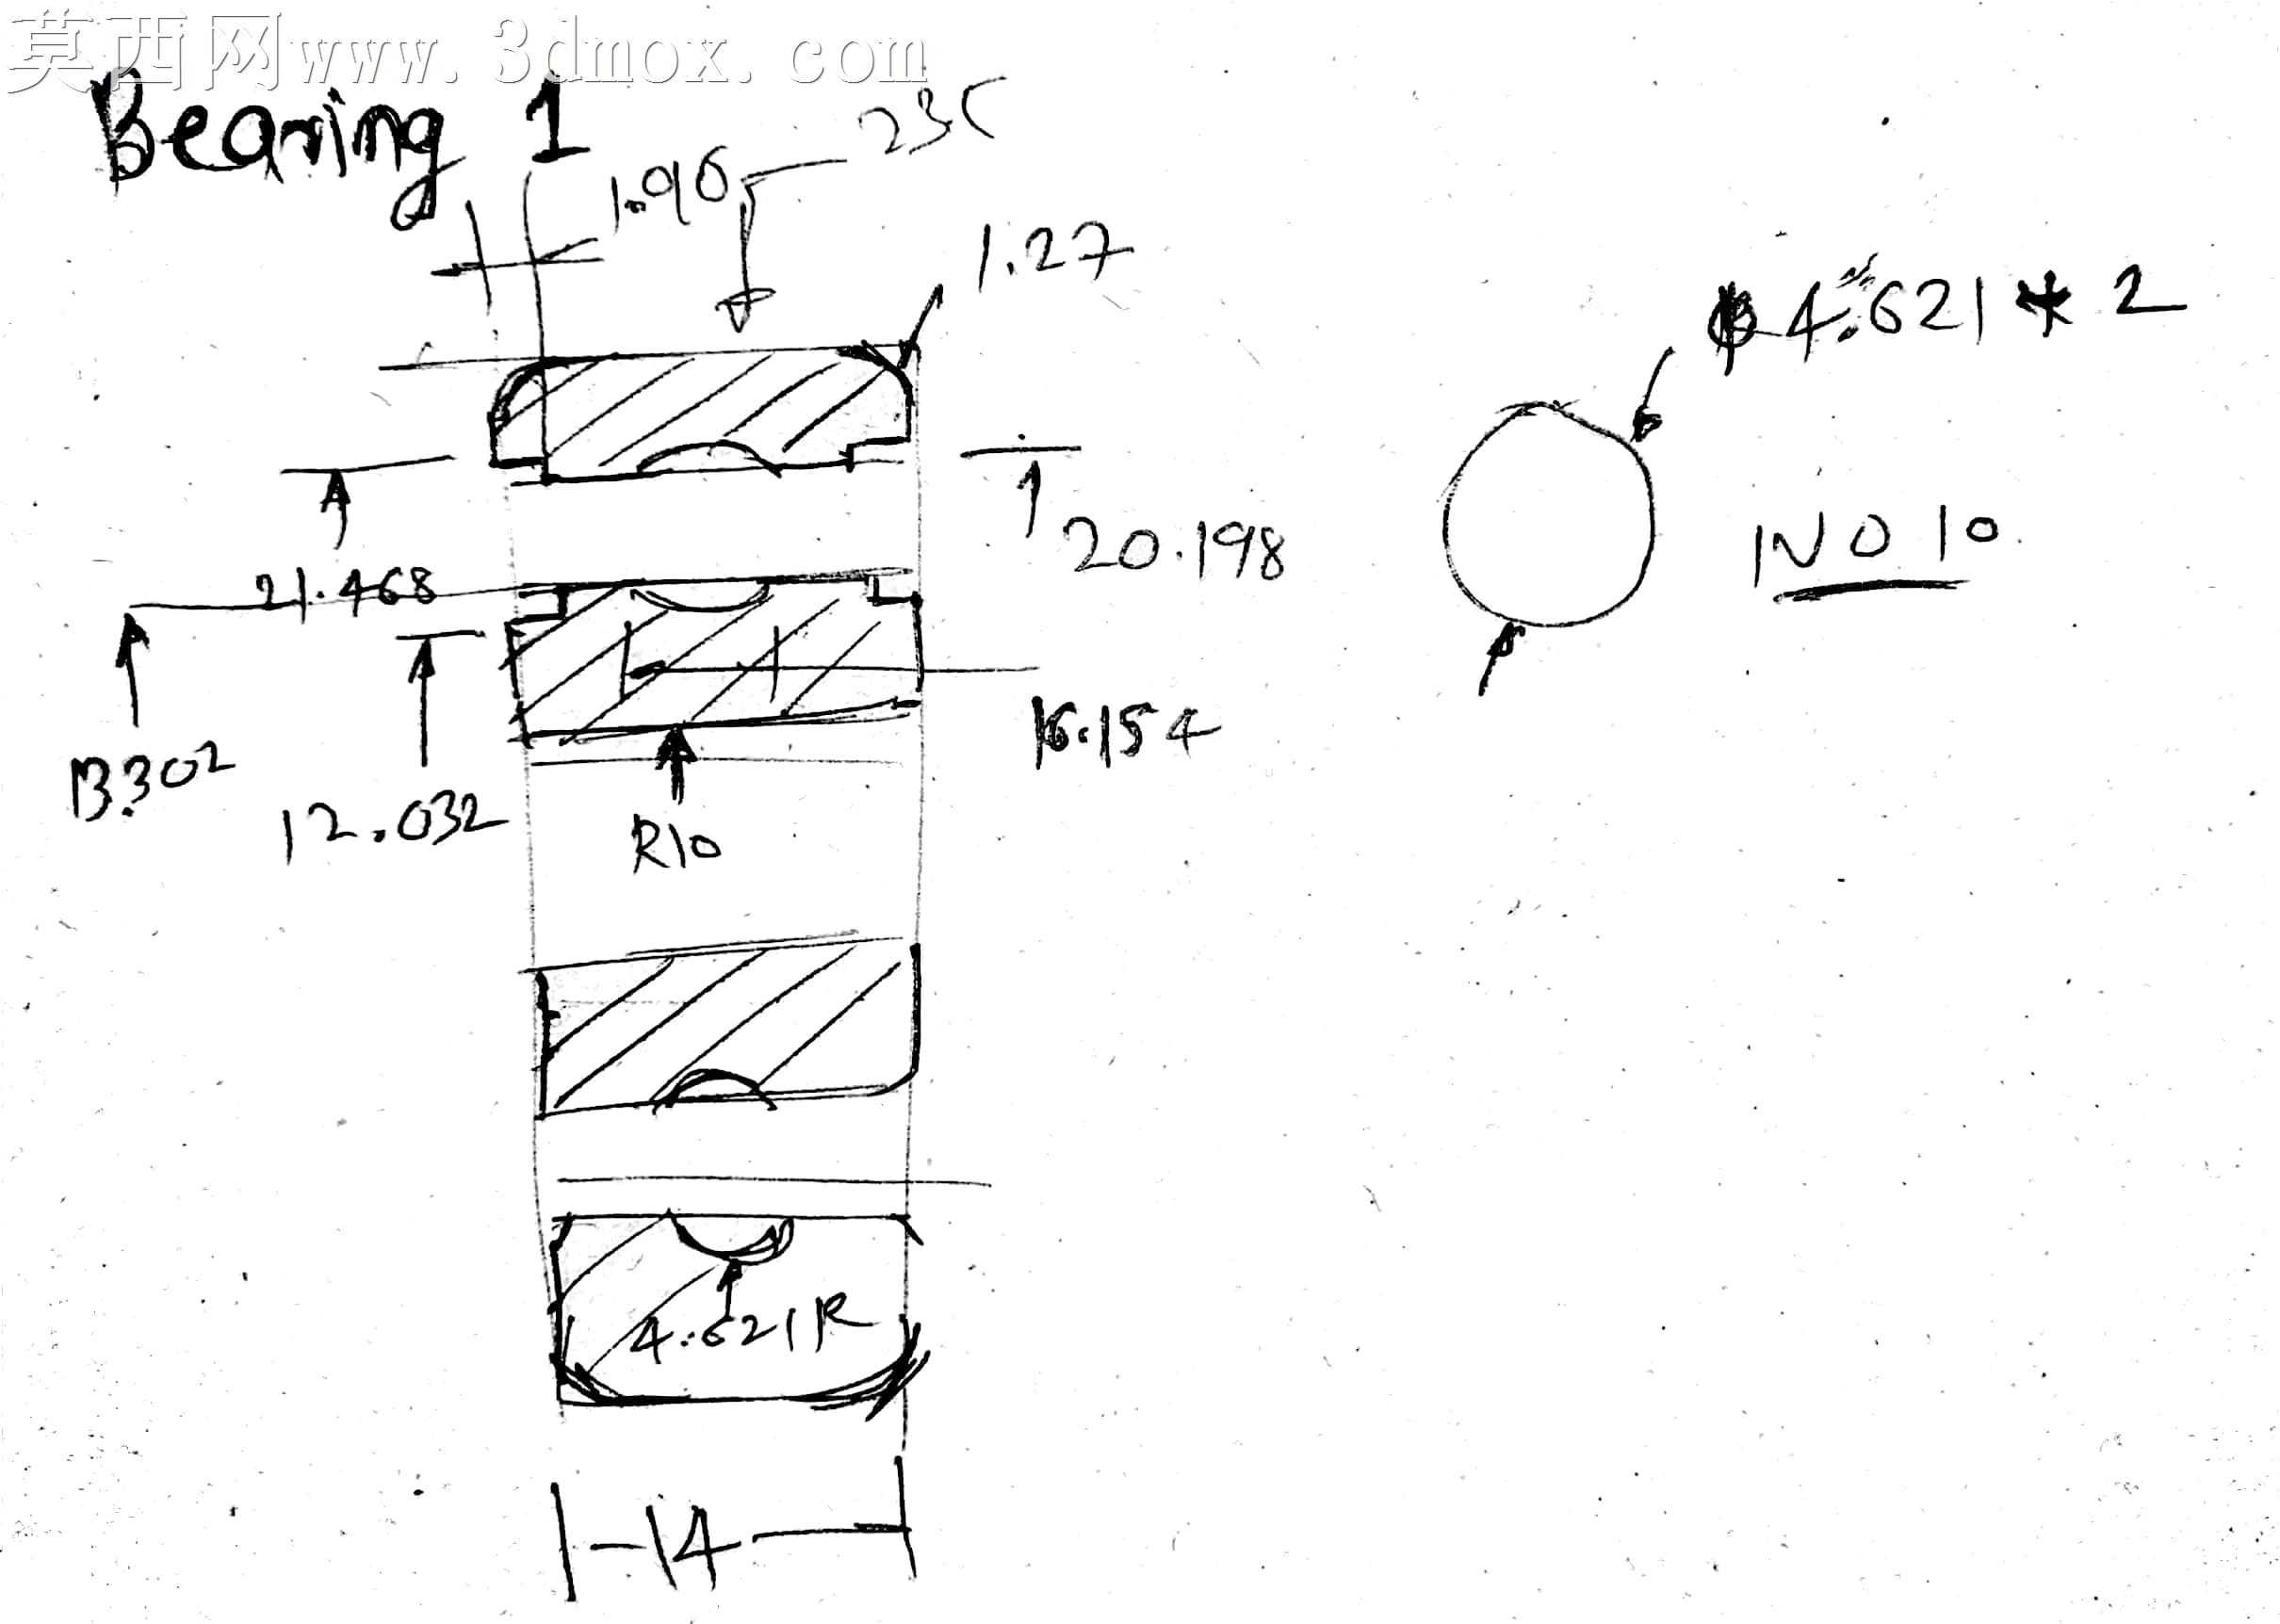 莫西网www.3dmox.com
Bearing 1
1.90
1.27
Φ4.621 * 2
20.198
NO 10
21.468
16.154
13.302
12.032
R10
4.621R
14